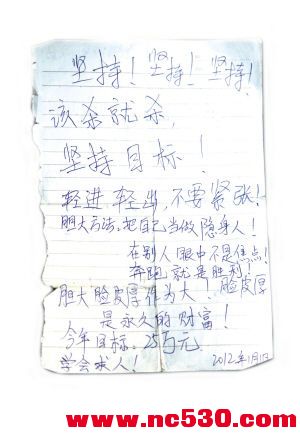 坚持！坚持！坚持！
该杀就杀，
坚持目标！
轻进轻出，不要紧张！
胆大方法，把自己当做隐身人！
在别人眼中不是焦点！
奔跑就是胜利！
胆大脸皮厚作为大！脸皮厚
是永久的财富！
今年目标。25万元
学会求人！
2012年1月1日
www.nc530.com